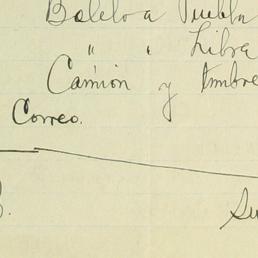 Boleto a Puebla
" " Libra
Camion y timbre
Correo.
Su